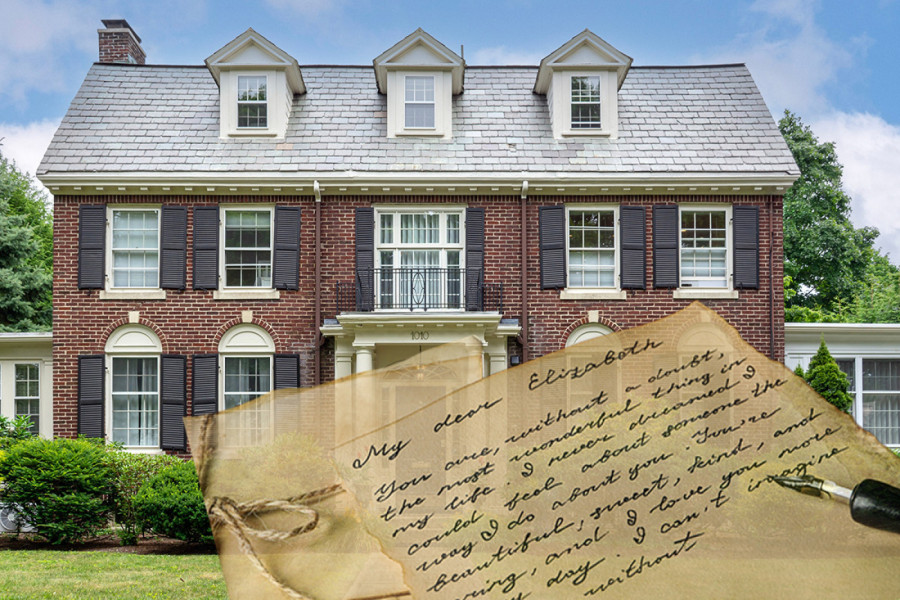 My dear Elizabeth
You are, without a doubt,
the most wonderful thing in
my life. I never dreamed I
could feel about someone the
way I do about you. You're
beautiful, sweet, kind, and
and I love you more
day. I can't imagine
without